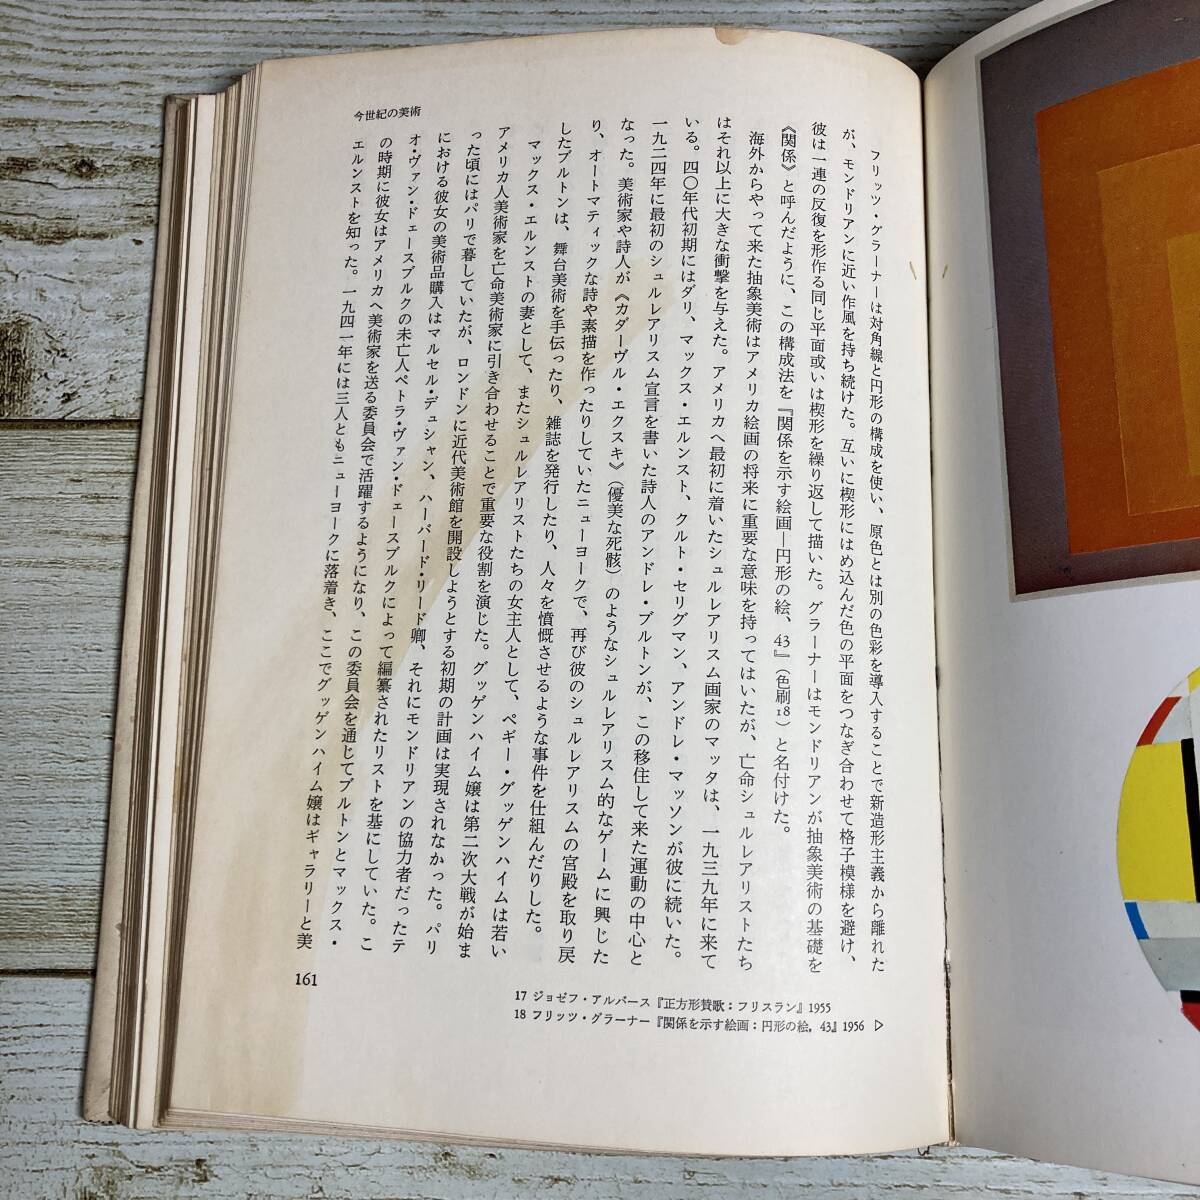 今世紀の美術
フリッツ・グラーナーは対角線と円形の構成を使い、原色とは別の色彩を導入することで新造形主義から離れた
が、モンドリアンに近い作風を持ち続けた。互いに楔形にはめ込んだ色の平面をつなぎ合わせて格子模様を避け、
彼は一連の反復を形作る同じ平面或いは楔形を繰り返して描いた。グラーナーはモンドリアンが抽象美術の基礎を
《関係》と呼んだように、この構成法を『関係を示す絵画―円形の絵、43』（色刷18）と名付けた。
海外からやって来た抽象美術はアメリカ絵画の将来に重要な意味を持ってはいたが、亡命シュルレアリストたち
はそれ以上に大きな衝撃を与えた。アメリカへ最初に着いたシュルレアリスム画家のマッタは、一九三九年に来て
いる。四〇年代初期にはダリ、マックス・エルンスト、クルト・セリグマン、アンドレ・マッソンが彼に続いた。
一九二四年に最初のシュルレアリスム宣言を書いた詩人のアンドレ・ブルトンが、この移住して来た運動の中心と
なった。美術家や詩人が《カダーヴル・エクスキ》（優美な死骸）のようなシュルレアリスム的なゲームに興じた
り、オートマティックな詩や素描を作ったりしていたニューヨークで、再び彼のシュルレアリスムの宮殿を取り戻
したブルトンは、舞台美術を手伝ったり、雑誌を発行したり、人々を憤慨させるような事件を仕組んだりした。
マックス・エルンストの妻として、またシュルレアリストたちの女主人として、ペギー・グッゲンハイムは若い
アメリカ人美術家を亡命美術家に引き合わせることで重要な役割を演じた。グッゲンハイム嬢は第二次大戦が始ま
った頃にはパリで暮していたが、ロンドンに近代美術館を開設しようとする初期の計画は実現されなかった。パリ
における彼女の美術品購入はマルセル・デュシャン、ハーバード・リード卿、それにモンドリアンの協力者だったテ
オ・ヴァン・ドェースブルクの未亡人ペトラ・ヴァン・ドェースブルクによって編纂されたリストを基にしていた。こ
の時期に彼女はアメリカへ美術家を送る委員会で活躍するようになり、この委員会を通じてブルトンとマックス・
エルンストを知った。一九四一年には三人ともニューヨークに落着き、ここでグッゲンハイム嬢はギャラリーと美
161
17 ジョゼフ・アルバース『正方形賛歌：フリスラン』1955
18 フリッツ・グラーナー『関係を示す絵画：円形の絵，43』1956 ▷